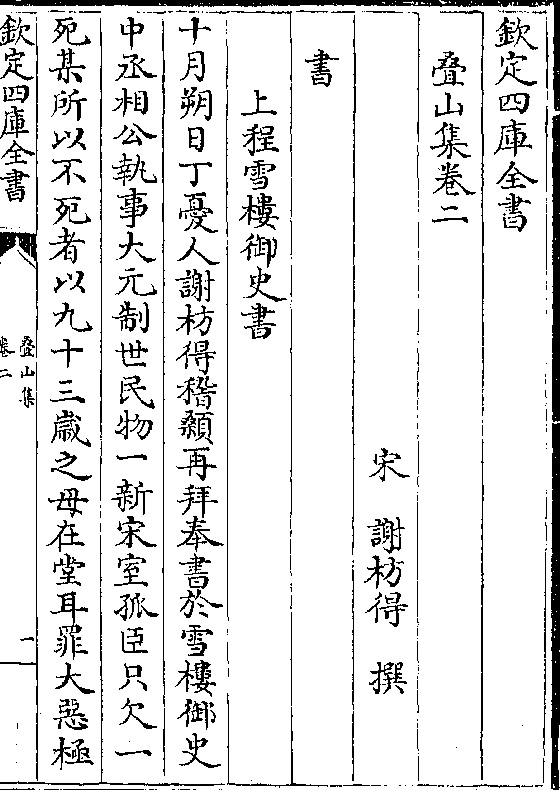 欽定四庫全書
疊山集卷二
宋 謝枋得 撰
書
上程雪樓御史書
十月朔日丁憂人謝枋得稽顙再拜奉書於雪樓御史
中丞相公執事大元制世民物一新宋室孤臣只欠一
死某所以不死者以九十三歲之母在堂耳罪大惡極
欽定四庫全書
疊山集
卷二
一